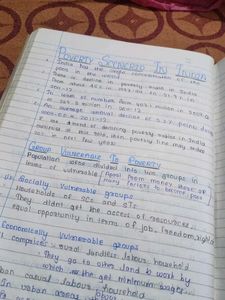 POVERTY SCENERIO IN INDIA
India has the single concentration of the
poor in the world
There is decline in poverty ratio in India
from about 45% in 1993-94 to
2011-12
In terms of number from 407.1 million in 2004-5
to 269.3 million in 2011-12.
An average annual decline of 2.2% points during
2004-05 to 2011-12.
If the trend of declining poverty ratio in India
continues at this rate, below poverty line may reduce
20% in next few years
GROUP VULNERABLE TO POVERTY
Population were divided into two groups in
terms of vulnerable
Socially Vulnerable groups
Households of SCs and STs
They didnt get the access of resources
equal opportunity in terms of job, freedom, rights
Economically Vulnerable groups
comprises rural landless labour household
They go to other land to work by
which get the minimum wages
urban casual labour household
In urban areas